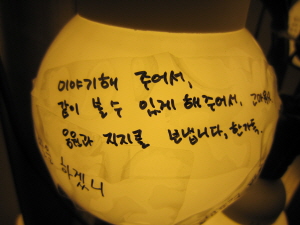 이야기해 주어서,
같이 볼 수 있게 해주어서, 고마워요
응원과 지지를 보냅니다, 한가득.
하겠니